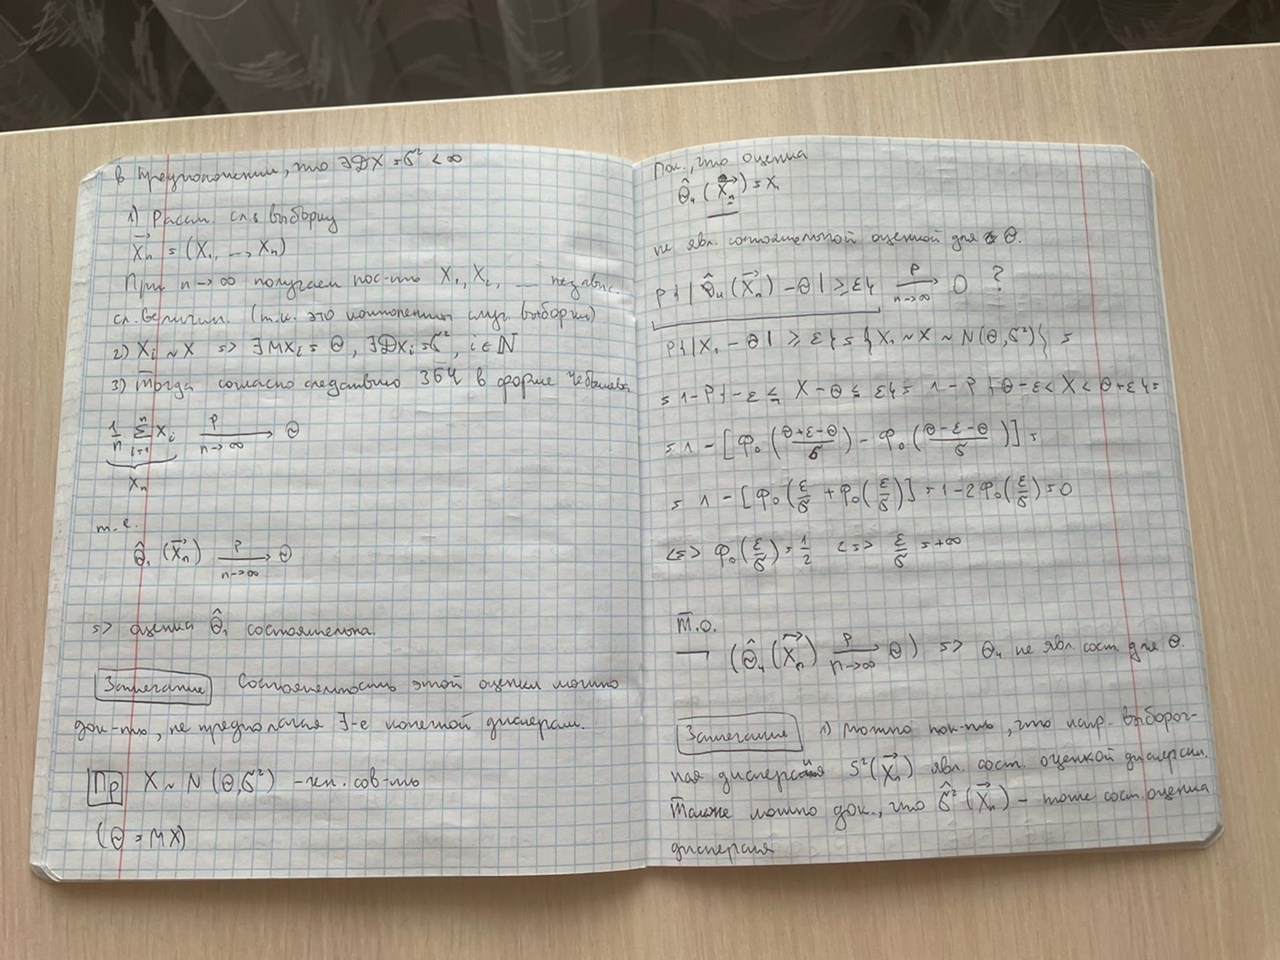 в предположении, что ∃DX = σ² < ∞
1) Рассм. сл. выборку
X⃗n = (X₁, ..., Xn)
При n→∞ получаем пос-ть X₁, X₂, ... независ.
сл. величин. (т.к. это компоненты случ. выборки)
2) Xi ~ X => ∃MXi = θ, ∃DXi = σ², i ∈ ℕ
3) Тогда согласно следствию ЗБЧ в форме Чебышева
1/n Σ(i=1..n) Xi —P→ (n→∞) θ
X̄n
т.е.
θ̂₁(X⃗n) —P→ (n→∞) θ
=> оценка θ̂₁ состоятельна.
Замечание Состоятельность этой оценки можно
док-ть, не предполагая ∃-е конечной дисперсии.
Пр X ~ N(θ, σ²) – ген. сов-ть
(θ = MX)
Пок., что оценка
θ̂₄(X⃗n) = X₁
не явл. состоятельной оценкой для θ.
P{|θ̂₄(X⃗n) - θ| ≥ ε} —P→ (n→∞) 0 ?
P{|X₁ - θ| ≥ ε} = {X₁ ~ X ~ N(θ, σ²)} =
= 1 - P{-ε ≤ X - θ ≤ ε} = 1 - P{θ-ε < X < θ+ε} =
= 1 - [Φ₀((θ+ε-θ)/σ) - Φ₀((θ-ε-θ)/σ)] =
= 1 - [Φ₀(ε/σ + Φ₀(ε/σ)] = 1 - 2Φ₀(ε/σ) = 0
<=> Φ₀(ε/σ) = 1/2 <=> ε/σ = +∞
Т.о.
¬(θ̂₄(X⃗n) —P→ (n→∞) θ) => θ₄ не явл. сост. для θ.
Замечание 1) Можно пок-ть, что испр. выбороч-
ная дисперсия S²(X⃗n) явл. сост. оценкой дисперсии.
Также можно док., что σ̂²(X⃗n) – тоже сост. оценка
дисперсия